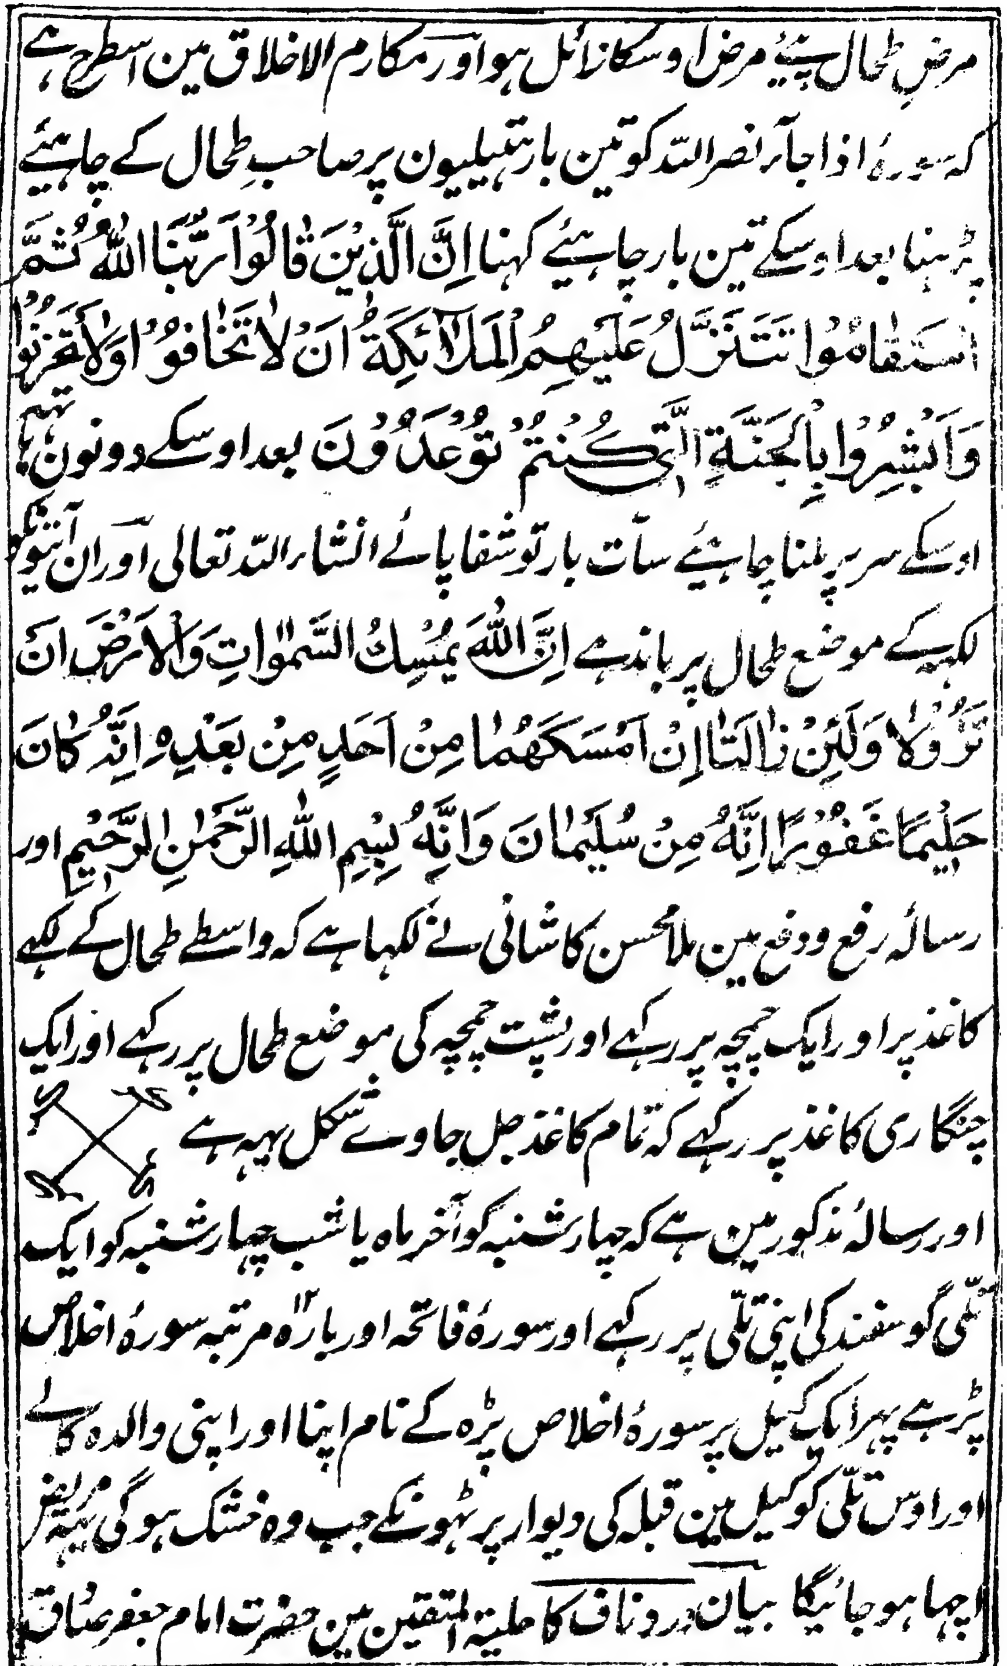 مرضِ طحال پیئے مرض اوسکا زائل ہو اور مکارم الاخلاق مین اسطرح ہے
کہ سورۂ اذا جآء نصر اللہ کو تین بار ہتیلیون پر صاحبِ طحال کے چاہیئے
پڑہنا بعد اوسکے تین بار چاہیئے کہنا اِنَّ الَّذِیْنَ قَالُوْا رَبُّنَا اللّٰهُ ثُمَّ
اسْتَقَامُوْا تَتَنَزَّلُ عَلَیْهِمُ الْمَلَآئِکَةُ اَنْ لَا تَخَافُوْا وَلَا تَحْزَنُوْا
وَاَبْشِرُوْا بِالْجَنَّةِ الَّتِیْ کُنْتُمْ تُوْعَدُوْنَ بعد اوسکے دونون ہاتہہ
اوسکے سر پر ملنا چاہیئے سات بار تو شفا پائے انشاء اللہ تعالی اور ان آیتونکو
لکہہ کے موضع طحال پر باندہے اِنَّ اللّٰهَ یُمْسِكُ السَّمٰوٰاتِ وَالْاَرْضَ اَنْ
تَزُوْلَا وَلَئِنْ زَالَتَا اِنْ اَمْسَكَهُمَا مِنْ اَحَدٍ مِنْ بَعْدِهٖ اِنَّهُ کَانَ
حَلِیْمًا غَفُوْرًا اِنَّهُ مِنْ سُلَیْمَانَ وَاِنَّهُ بِسْمِ اللّٰهِ الرَّحْمٰنِ الرَّحِیْمِ اور
رسالۂ رفع و دفع مین ملا محسن کاشانی نے لکہا ہے کہ واسطے طحال کے لکہے
کاغذ پر اور ایک چمچہ پر رکہے اور پشت چمچہ کی موضع طحال پر رکہے اور ایک
چنگاری کاغذ پر رکہے کہ تمام کاغذ جل جاوے شکل یہہ ہے
اور رسالۂ مذکور مین ہے کہ چہار شنبہ کو آخر ماہ یا شب چہار شنبہ کو ایک
تلّی گوسفند کی اپنی تلّی پر رکہے اور سورۂ فاتحہ اور بارہ ۱۲ مرتبہ سورۂ اخلاص
پڑہے پہر ایک کیل پر سورۂ اخلاص پڑہ کے نام اپنا اور اپنی والدہ کا لے
اور اوس تلّی کو کیل مین قبلہ کی دیوار پر ٹہونکے جب وہ خشک ہوگی یہہ مریض
اچہا ہو جائیگا بیان درد ناف کا حلیۃ المتقین مین حضرت امام جعفر صادق